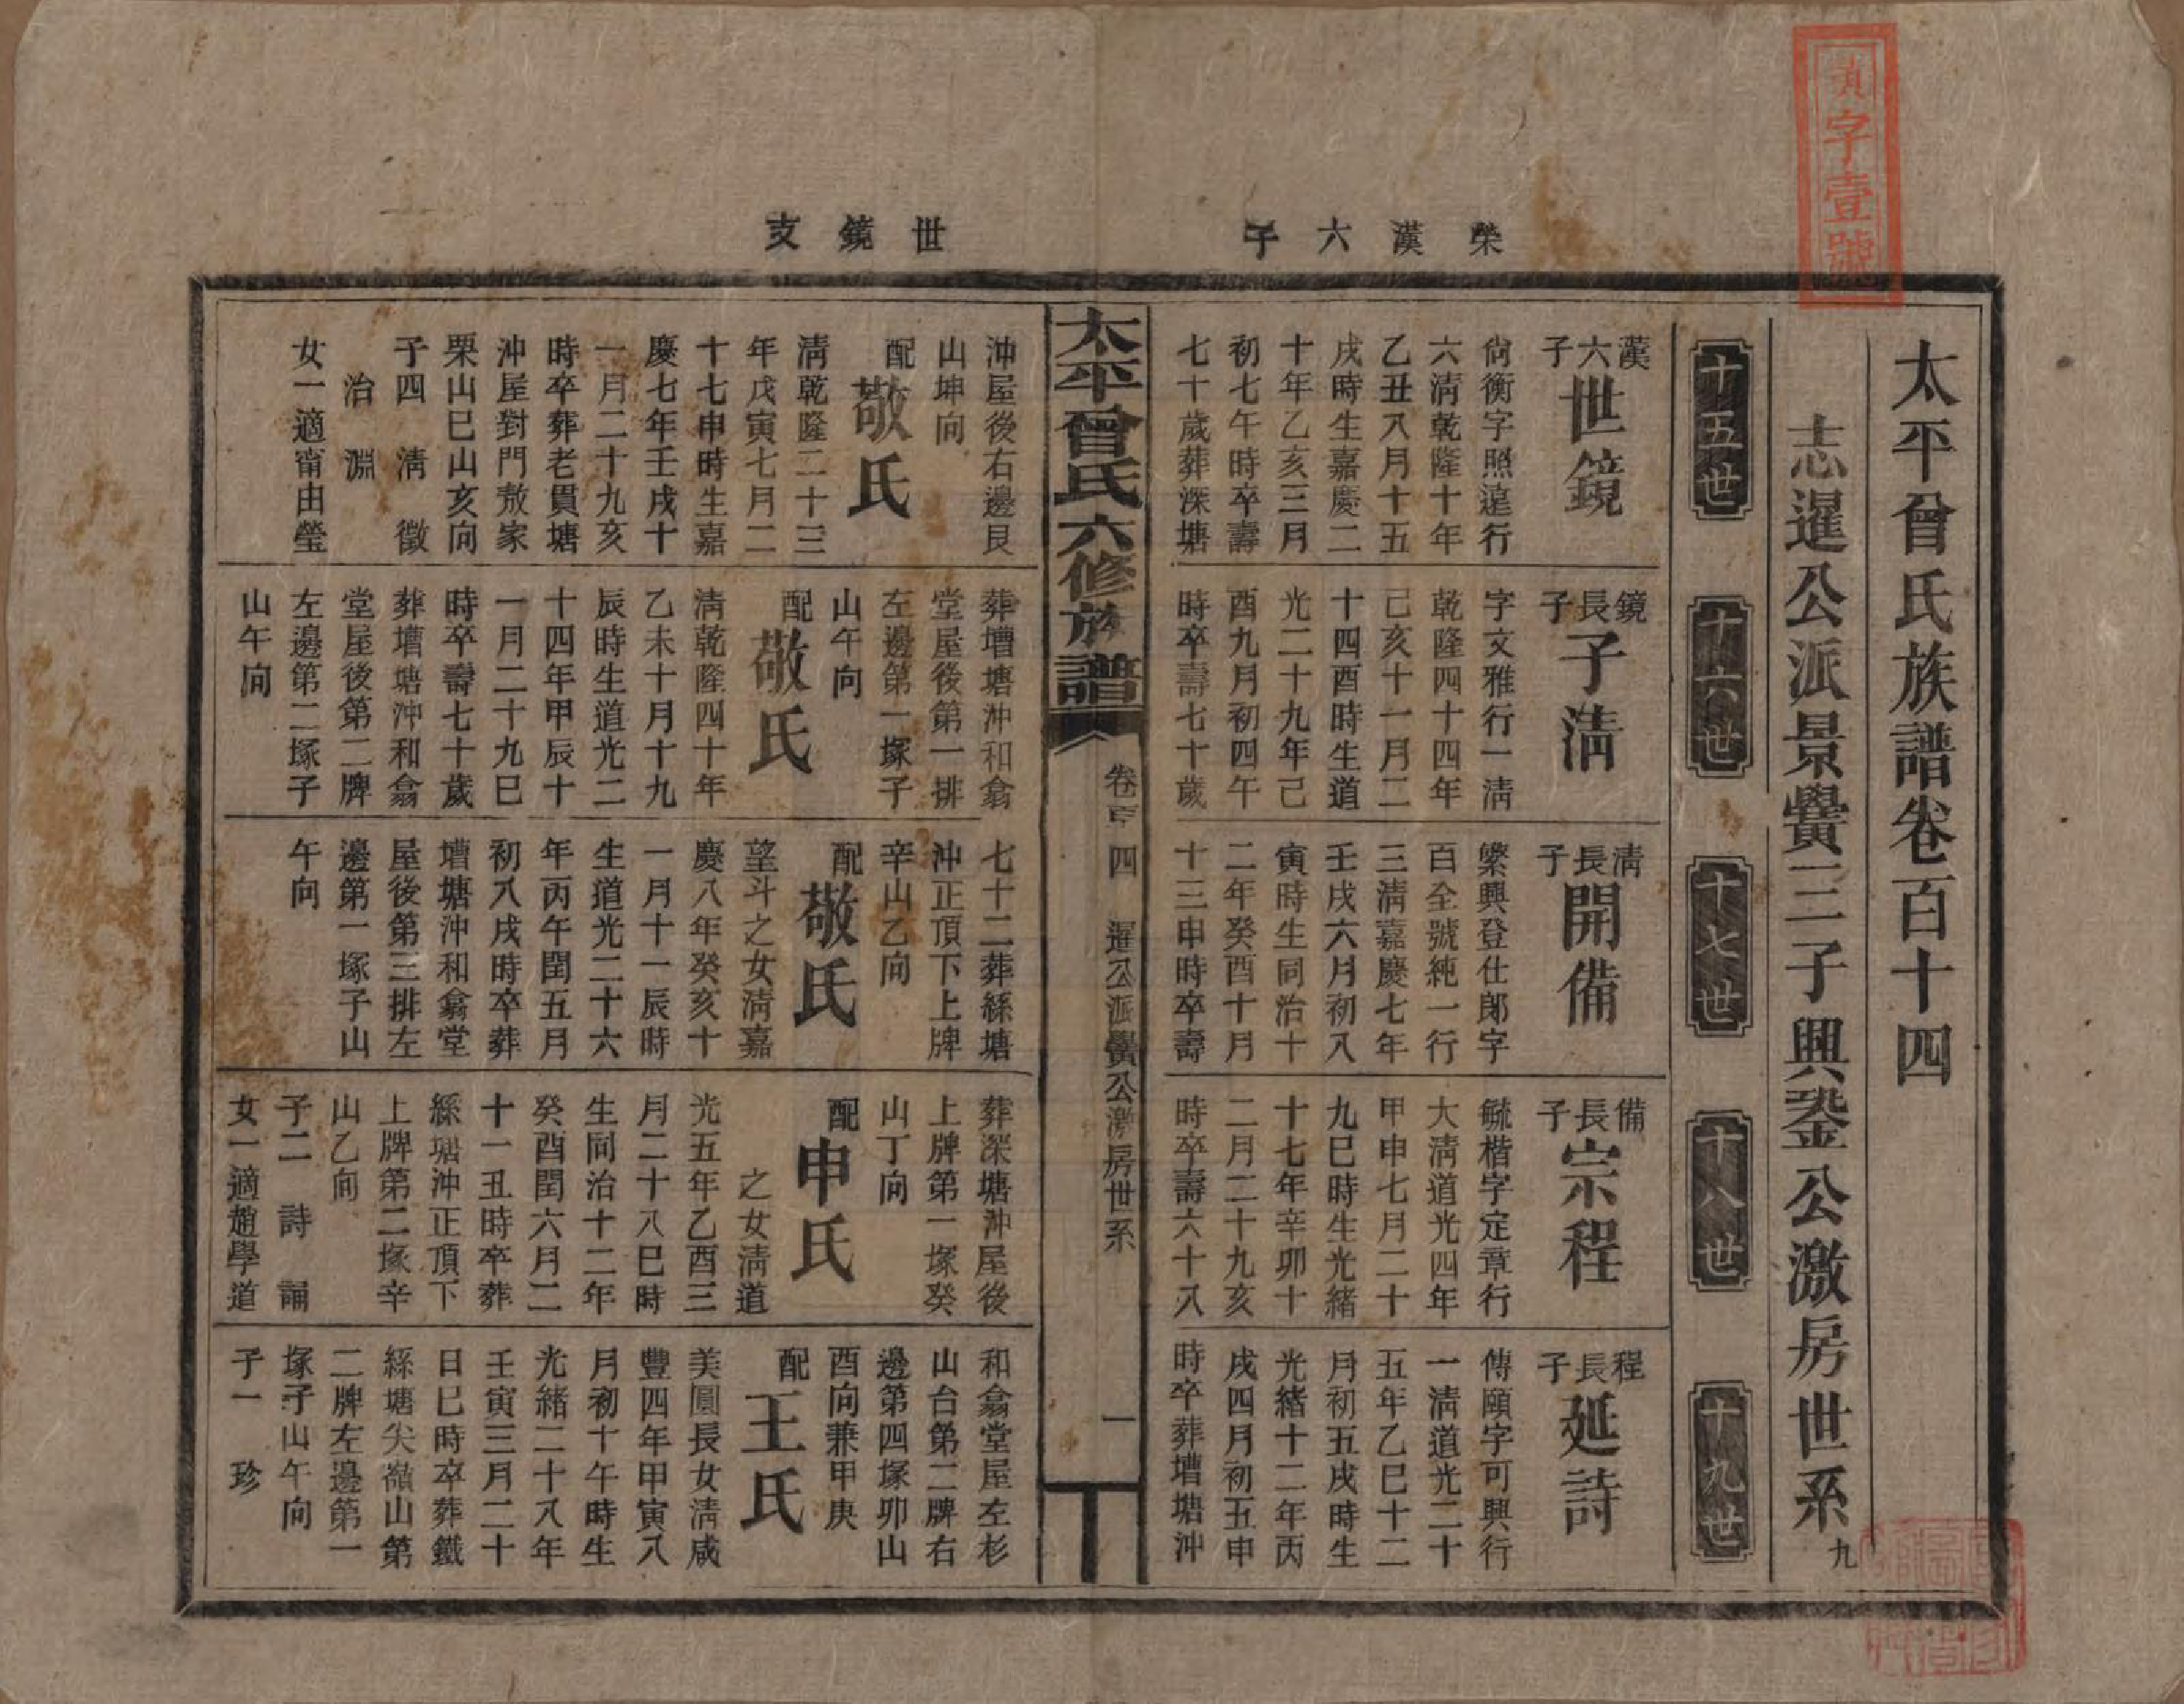 字壹號
榮漢六子
世鏡支
太平曾氏族譜卷百十四
志暹公派景黌三子興鋆公激房世系九
十五世
十六世
十七世
十八世
十九世
漢六子
世鏡
尙衡字照遠行
六清乾隆十年
乙丑八月十五
戌時生嘉慶二
十年乙亥三月
初七午時卒壽
七十歲葬深塘
沖屋後右邊艮
山坤向
配
敬氏
清乾隆二十三
年戊寅七月二
十七申時生嘉
慶七年壬戌十
一月二十九亥
時卒葬老貫塘
沖屋對門敖家
栗山巳山亥向
子四 清 徵
治 淵
女一適甯由瑩
鏡長子
子清
字文雅行一清
乾隆四十四年
己亥十一月二
十四酉時生道
光二十九年己
酉九月初四午
時卒壽七十歲
葬塘塘沖和翕
堂屋後第一排
左邊第一塚子
山午向
配
敬氏
清乾隆四十年
乙未十月十九
辰時生道光二
十四年甲辰十
一月二十九巳
時卒壽七十歲
葬塘塘沖和翕
堂屋後第二牌
左邊第二塚子
山午向
清長子
開備
繁興登仕郎字
百全號純一行
三清嘉慶七年
壬戌六月初八
寅時生同治十
二年癸酉十月
十三申時卒壽
七十二葬絲塘
沖正頂下上牌
辛山乙向
配
敬氏
望斗之女清嘉
慶八年癸亥十
一月十一辰時
生道光二十六
年丙午閏五月
初八戌時卒葬
塘塘沖和翕堂
屋後第三排左
邊第一塚子山
午向
備長子
宗程
毓楷字定章行
大清道光四年
甲申七月二十
九巳時生光緒
十七年辛卯十
二月二十九亥
時卒壽六十八
葬深塘沖屋後
上牌第一塚癸
山丁向
配
申氏
之女清道
光五年乙酉三
月二十八巳時
生同治十二年
癸酉閏六月二
十一丑時卒葬
絲塘沖正頂下
上牌第二塚辛
山乙向
子二 詩 誦
女一適趙學道
程長子
延詩
傳頤字可興行
一清道光二十
五年乙巳十二
月初五戌時生
光緒十二年丙
戌四月初五申
時卒葬塘塘沖
和翕堂屋左杉
山台第二牌右
邊第四塚卯山
酉向兼甲庚
配
王氏
美圓長女清咸
豐四年甲寅八
月初十午時生
光緒二十八年
壬寅三月二十
日巳時卒葬鐵
絲塘尖嶺山第
二牌左邊第一
塚子山午向
子一 珍
太平曾氏六修族譜
卷百十四 暹公派黌公激房世系
一